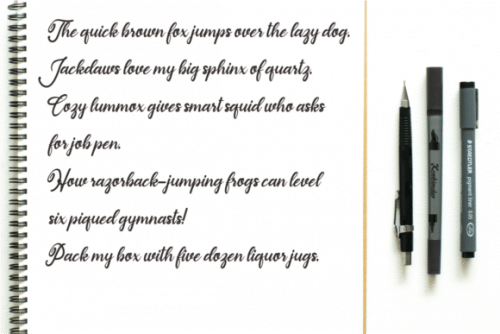 The quick brown fox jumps over the lazy dog.
Jackdaws love my big sphinx of quartz.
Cozy lummox gives smart squid who asks
for job pen.
How razorback-jumping frogs can level
six piqued gymnasts!
Pack my box with five dozen liquor jugs.
STAEDTLER
pigment liner